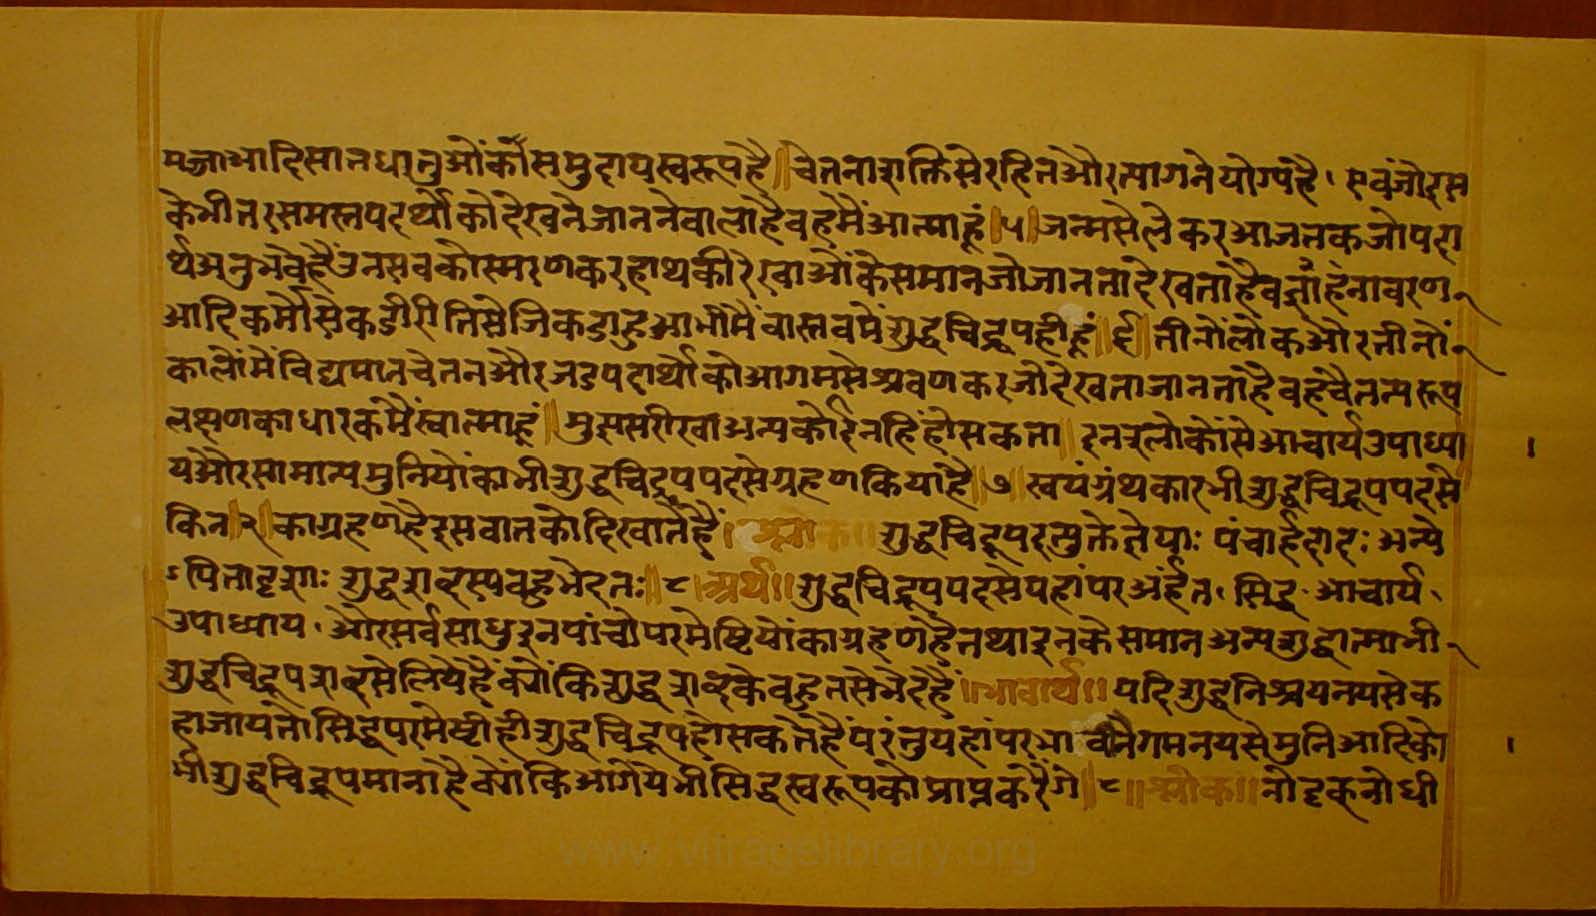 मज्जाआदिसातधातुओंकासमुदायस्वरूपहै॥चेतनाशक्तिसेरहितऔरत्यागनेयोग्यहै। एवंजोइस
केभीतरसमस्तपदार्थोंकोदेखनेजाननेवालाहैवहमैंआत्माहूं॥५॥जन्मसेलेकरआजतकजोपदा
र्थअनुभवेहैंउनसवकोस्मरणकरहाथकीरेखाओंकेसमानजोजानतादेखताहैव
आदिकर्मोंसेकडीरीतिसेजिकडाहुआभीमैंवास्तवमेंशुद्धचिद्रूपहीहूं॥६॥तीनोंलोकऔरतीनों
कालोंमेंविद्यमानचेतनऔरजडपदार्थोंकोआगमसेश्रवणकरजोदेखताजानताहैवहचैतन्यरूप
लक्षणकाधारकमैंस्वात्माहूं॥मुझसरीखाअन्यकोईनहिंहोसकता॥इनश्लोकोंसेआचार्यउपाध्या
यऔरसामान्यमुनियोंकाभीशुद्धचिद्रूपपदसेग्रहणकियाहै॥७॥स्वयंग्रंथकारभीशुद्धचिद्रूपपदसे
किन॥२॥काग्रहणहैइसवातकोदिखातेहैं।श्लोक॥शुद्धचिद्रूपइत्युक्तेज्ञेयाः पंचार्हदादः अन्ये
ऽपितादृशाः शुद्धशब्दस्यवहुभेदतः॥८॥अर्थ॥शुद्धचिद्रूपपदसेयहांपरअर्हंत। सिद्ध। आचार्य।
उपाध्याय। औरसर्वसाधुइनपांचोपरमेष्टियोंकाग्रहणहैतथाइनकेसमानअन्यशुद्धात्माभी
शुद्धचिद्रूपशब्दसेलियेहैंक्योंकिशुद्धशब्दकेवहुतसेभेदहैं॥भावार्थ॥यदिशुद्धनिश्चयनयसेक
हाजायतोसिद्धपरमेष्टीहीशुद्धचिद्रूपहोसकतेहैंपरंतुयहांपरभावीनैगमनयसेमुनिआदिको
भीशुद्धचिद्रूपमानाहैक्योंकिआगेयेभीसिद्धस्वरूपकोप्राप्तकरेंगे॥८॥श्लोक॥नोदृकनोधी
www.vitragelibrary.org